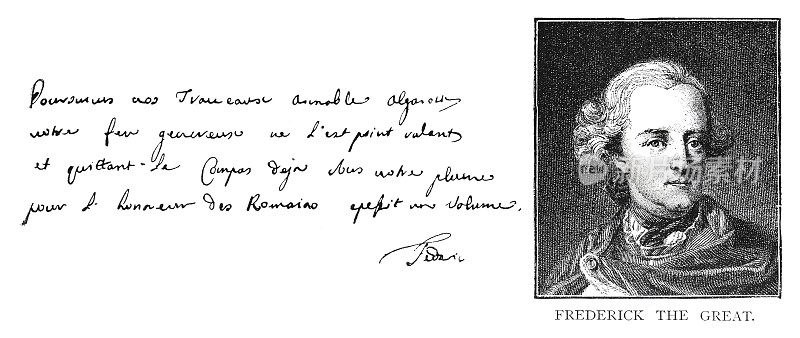 Poursuivés vos Traveaux aimable algaroti
votre feu genereuse ne s'est point ralanti
et quittant le Compas deja sous votre plume
pour l'honneur des Romains un volume.
Federic
FREDERICK THE GREAT.